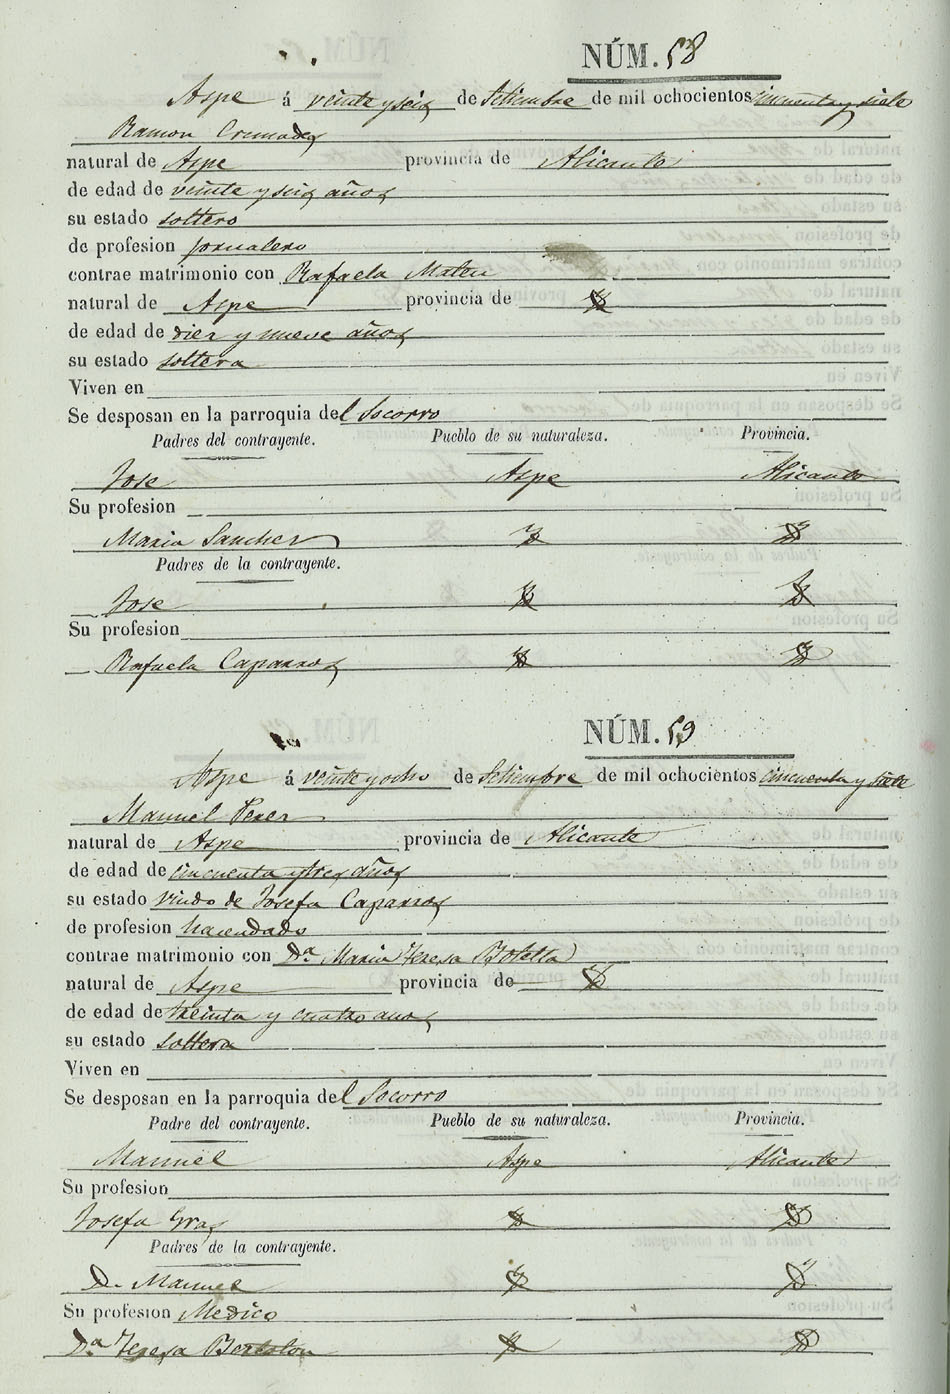 NÚM. 58
Aspe á veinte y seis de Setiembre de mil ochocientos cincuenta y siete
Ramon Cremades
natural de Aspe provincia de Alicante
de edad de veinte y seis años
su estado soltero
de profesion jornalero
contrae matrimonio con Rafaela Mateu
natural de Aspe provincia de
de edad de diez y nueve años
su estado soltera
Viven en
Se desposan en la parroquia del Socorro
Padres del contrayente. Pueblo de su naturaleza. Provincia.
Jose Aspe Alicante
Su profesion
Maria Sanchez
Padres de la contrayente.
Jose
Su profesion
Rafaela Caparros
NÚM. 59
Aspe á veinte y ocho de Setiembre de mil ochocientos cincuenta y siete
Manuel Perez
natural de Aspe provincia de Alicante
de edad de cincuenta y tres años
su estado viudo de Josefa Caparros
de profesion hacendado
contrae matrimonio con Da. Maria Teresa Botella
natural de Aspe provincia de
de edad de treinta y cuatro años
su estado soltera
Viven en
Se desposan en la parroquia del Socorro
Padre del contrayente. Pueblo de su naturaleza. Provincia.
Manuel Aspe Alicante
Su profesion
Josefa Gras
Padres de la contrayente.
D. Manuel
Su profesion Medico
Da. Teresa